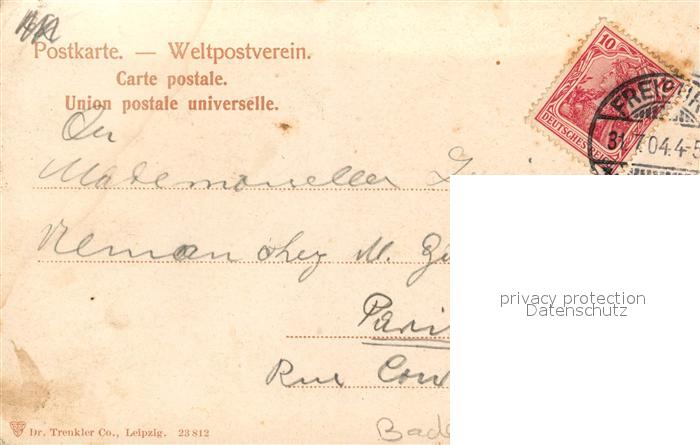 Postkarte. — Weltpostverein.
Carte postale.
Union postale universelle.
10
DEUTSCHES REICH
FREIBURG
31.7.04.4-5
An
Mademoiselle
chez M.
Paris
Rue
privacy protection
Datenschutz
Dr. Trenkler Co., Leipzig. 23 812
Bade